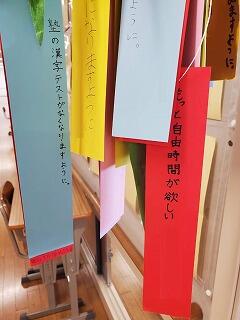 塾の漢字テストがなくなりますように。
になりますように
ように。
もっと自由時間が欲しい
ますように